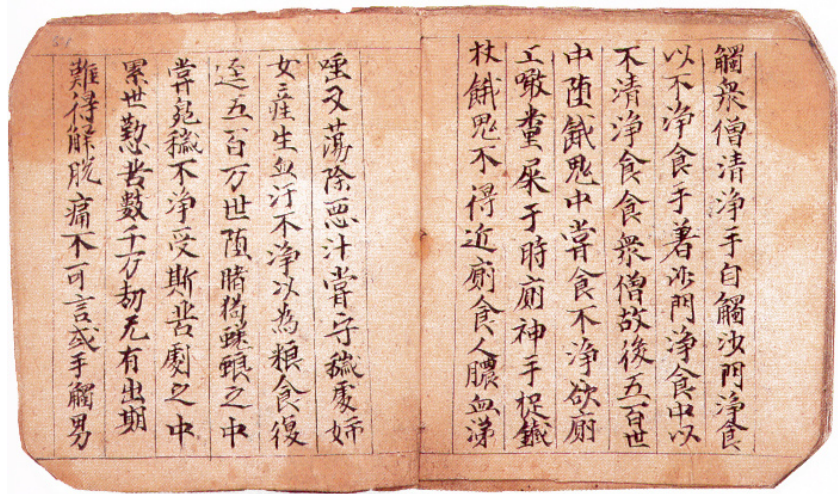 觸衆僧清淨手自觸沙門淨食
以不淨食手著沙門淨食中以
不清淨食食衆僧故後五百世
中堕餓鬼中甞食不淨欲廁
上噉糞屎于時廁神手捉鐵
杖餓鬼不得近廁食人膿血涕
唾又蕩除惡汁甞守穢處婦
女產生血汙不淨以為粮食復
逕五百万世堕䐗狗蜣蜋之中
甞臰穢不淨受斯苦劇之中
累世懃苦數千万劫无有出期
難得解脫痛不可言或手觸男